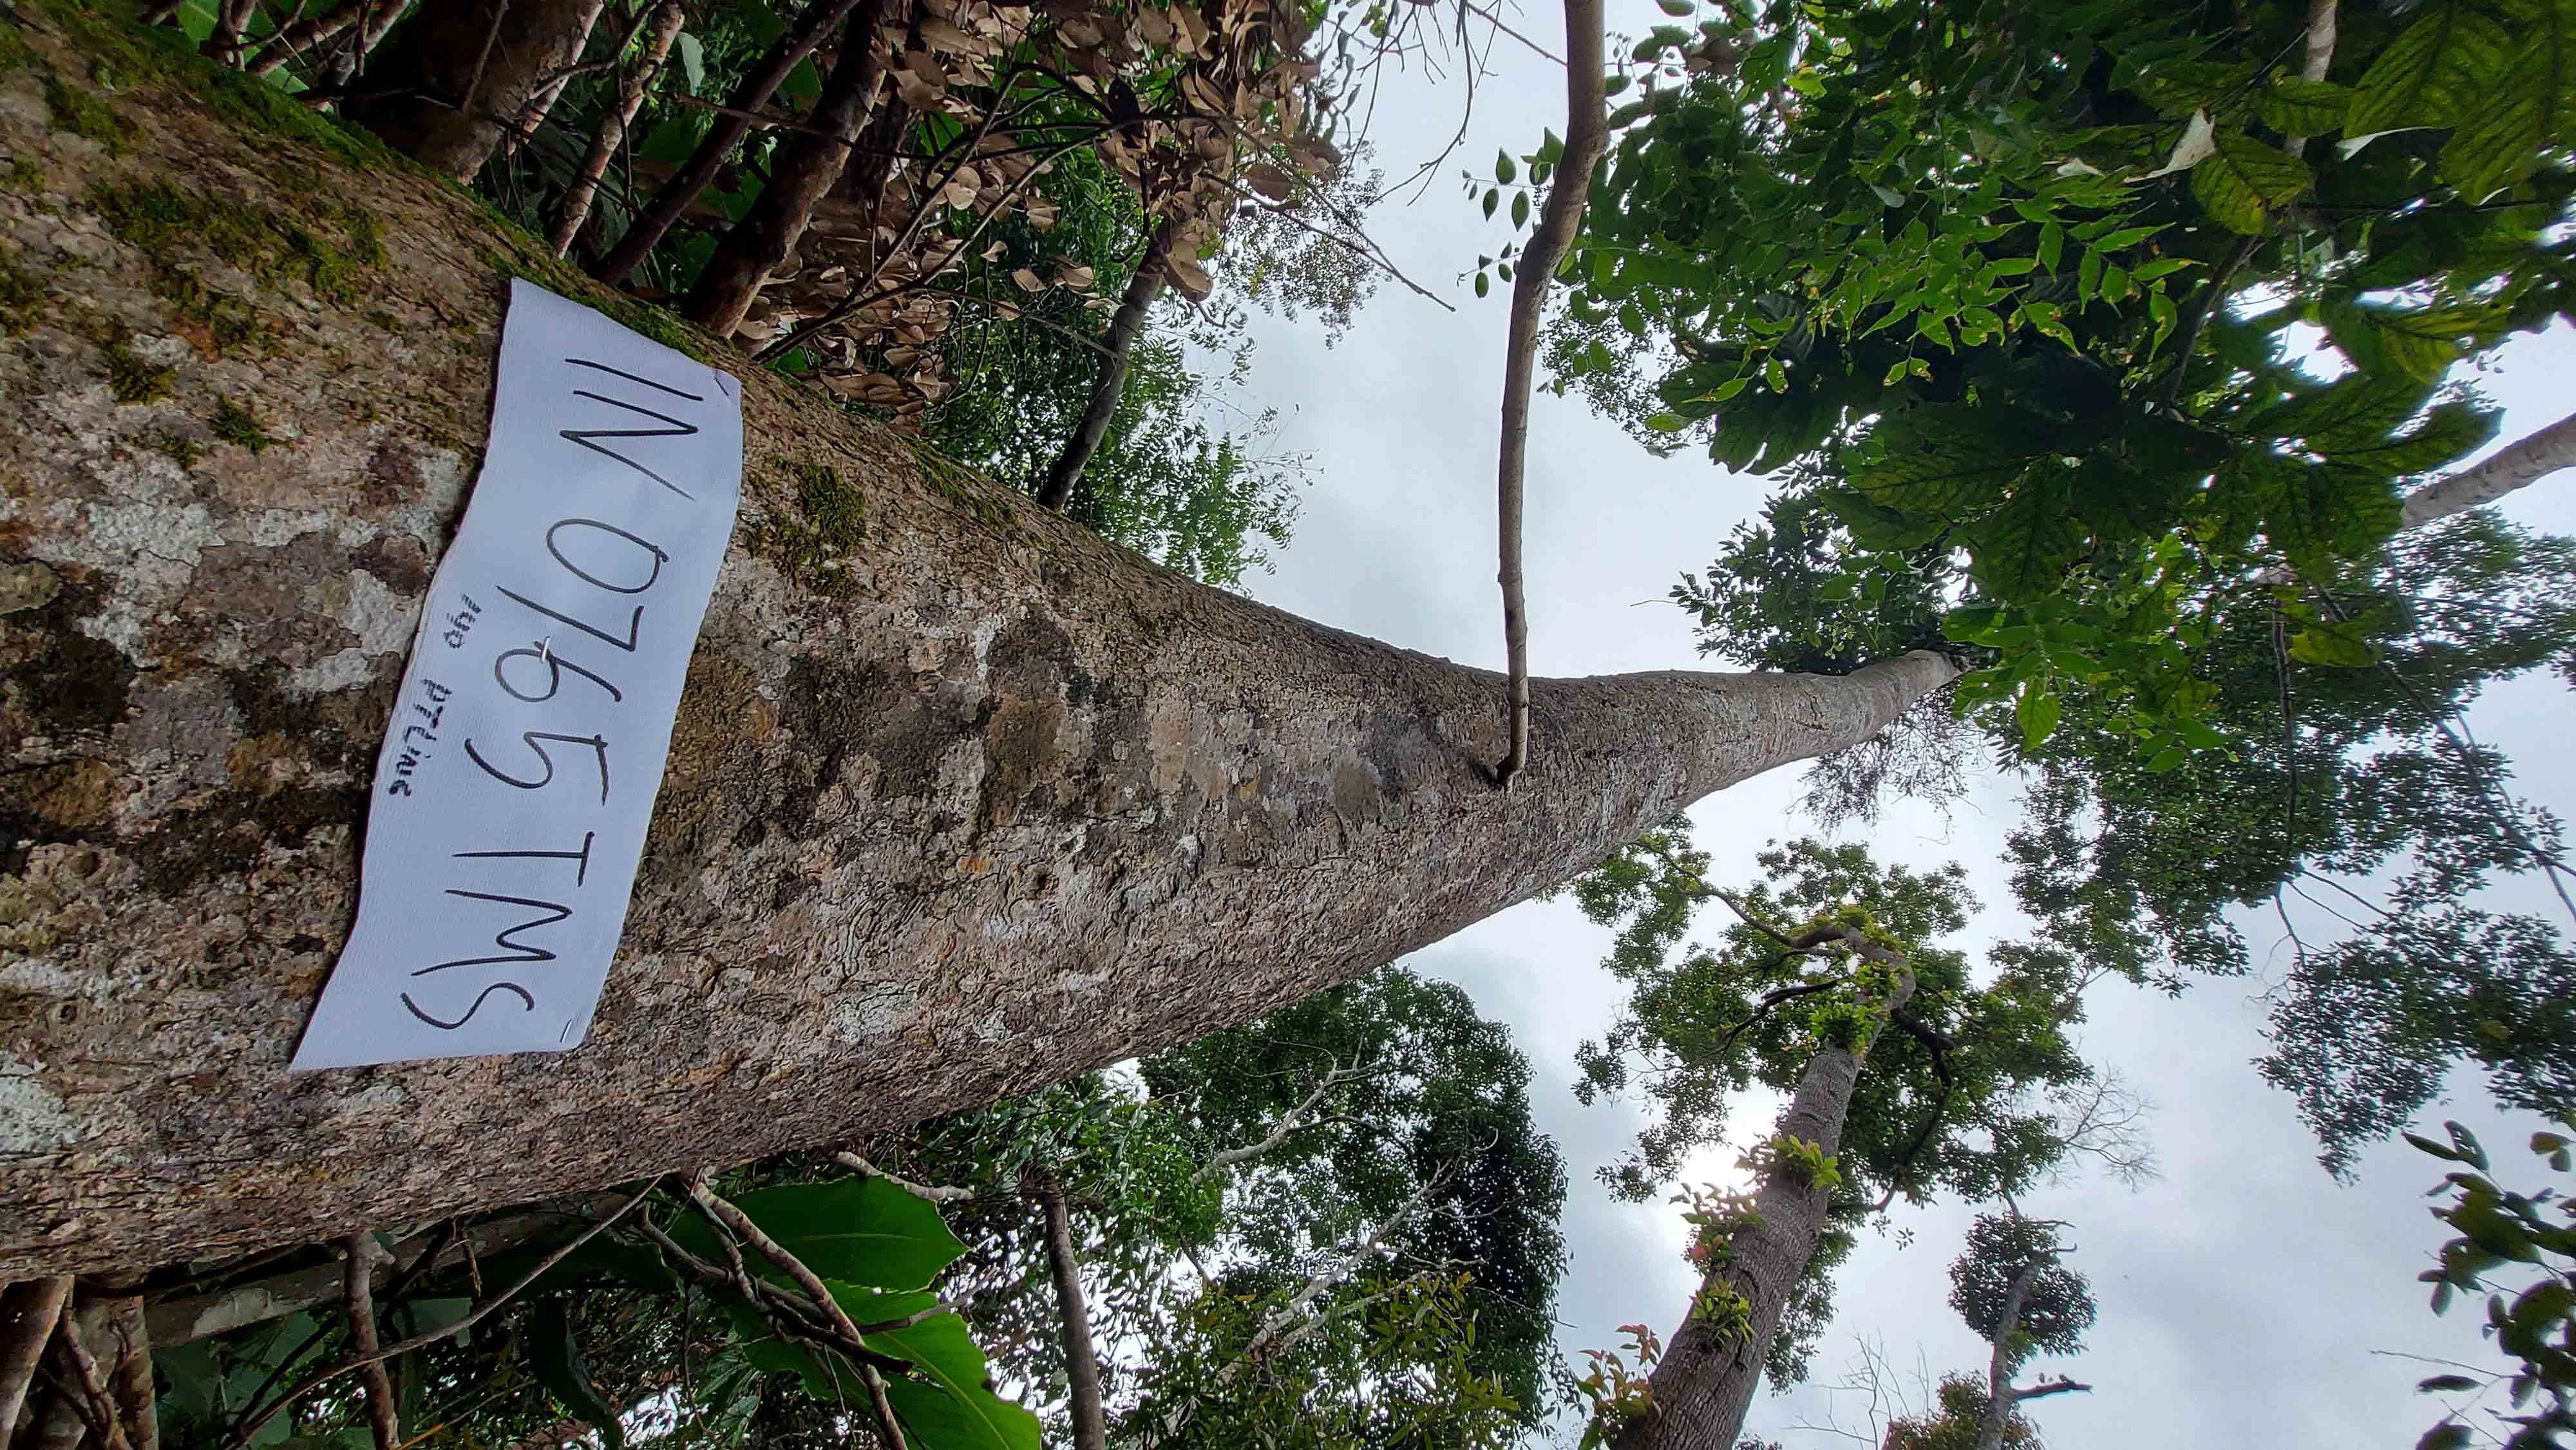 IN 0765 TMS
140 PTLING